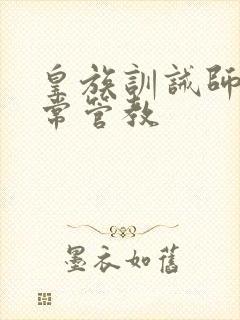 皇族訓誡師
常管教
墨衣如舊